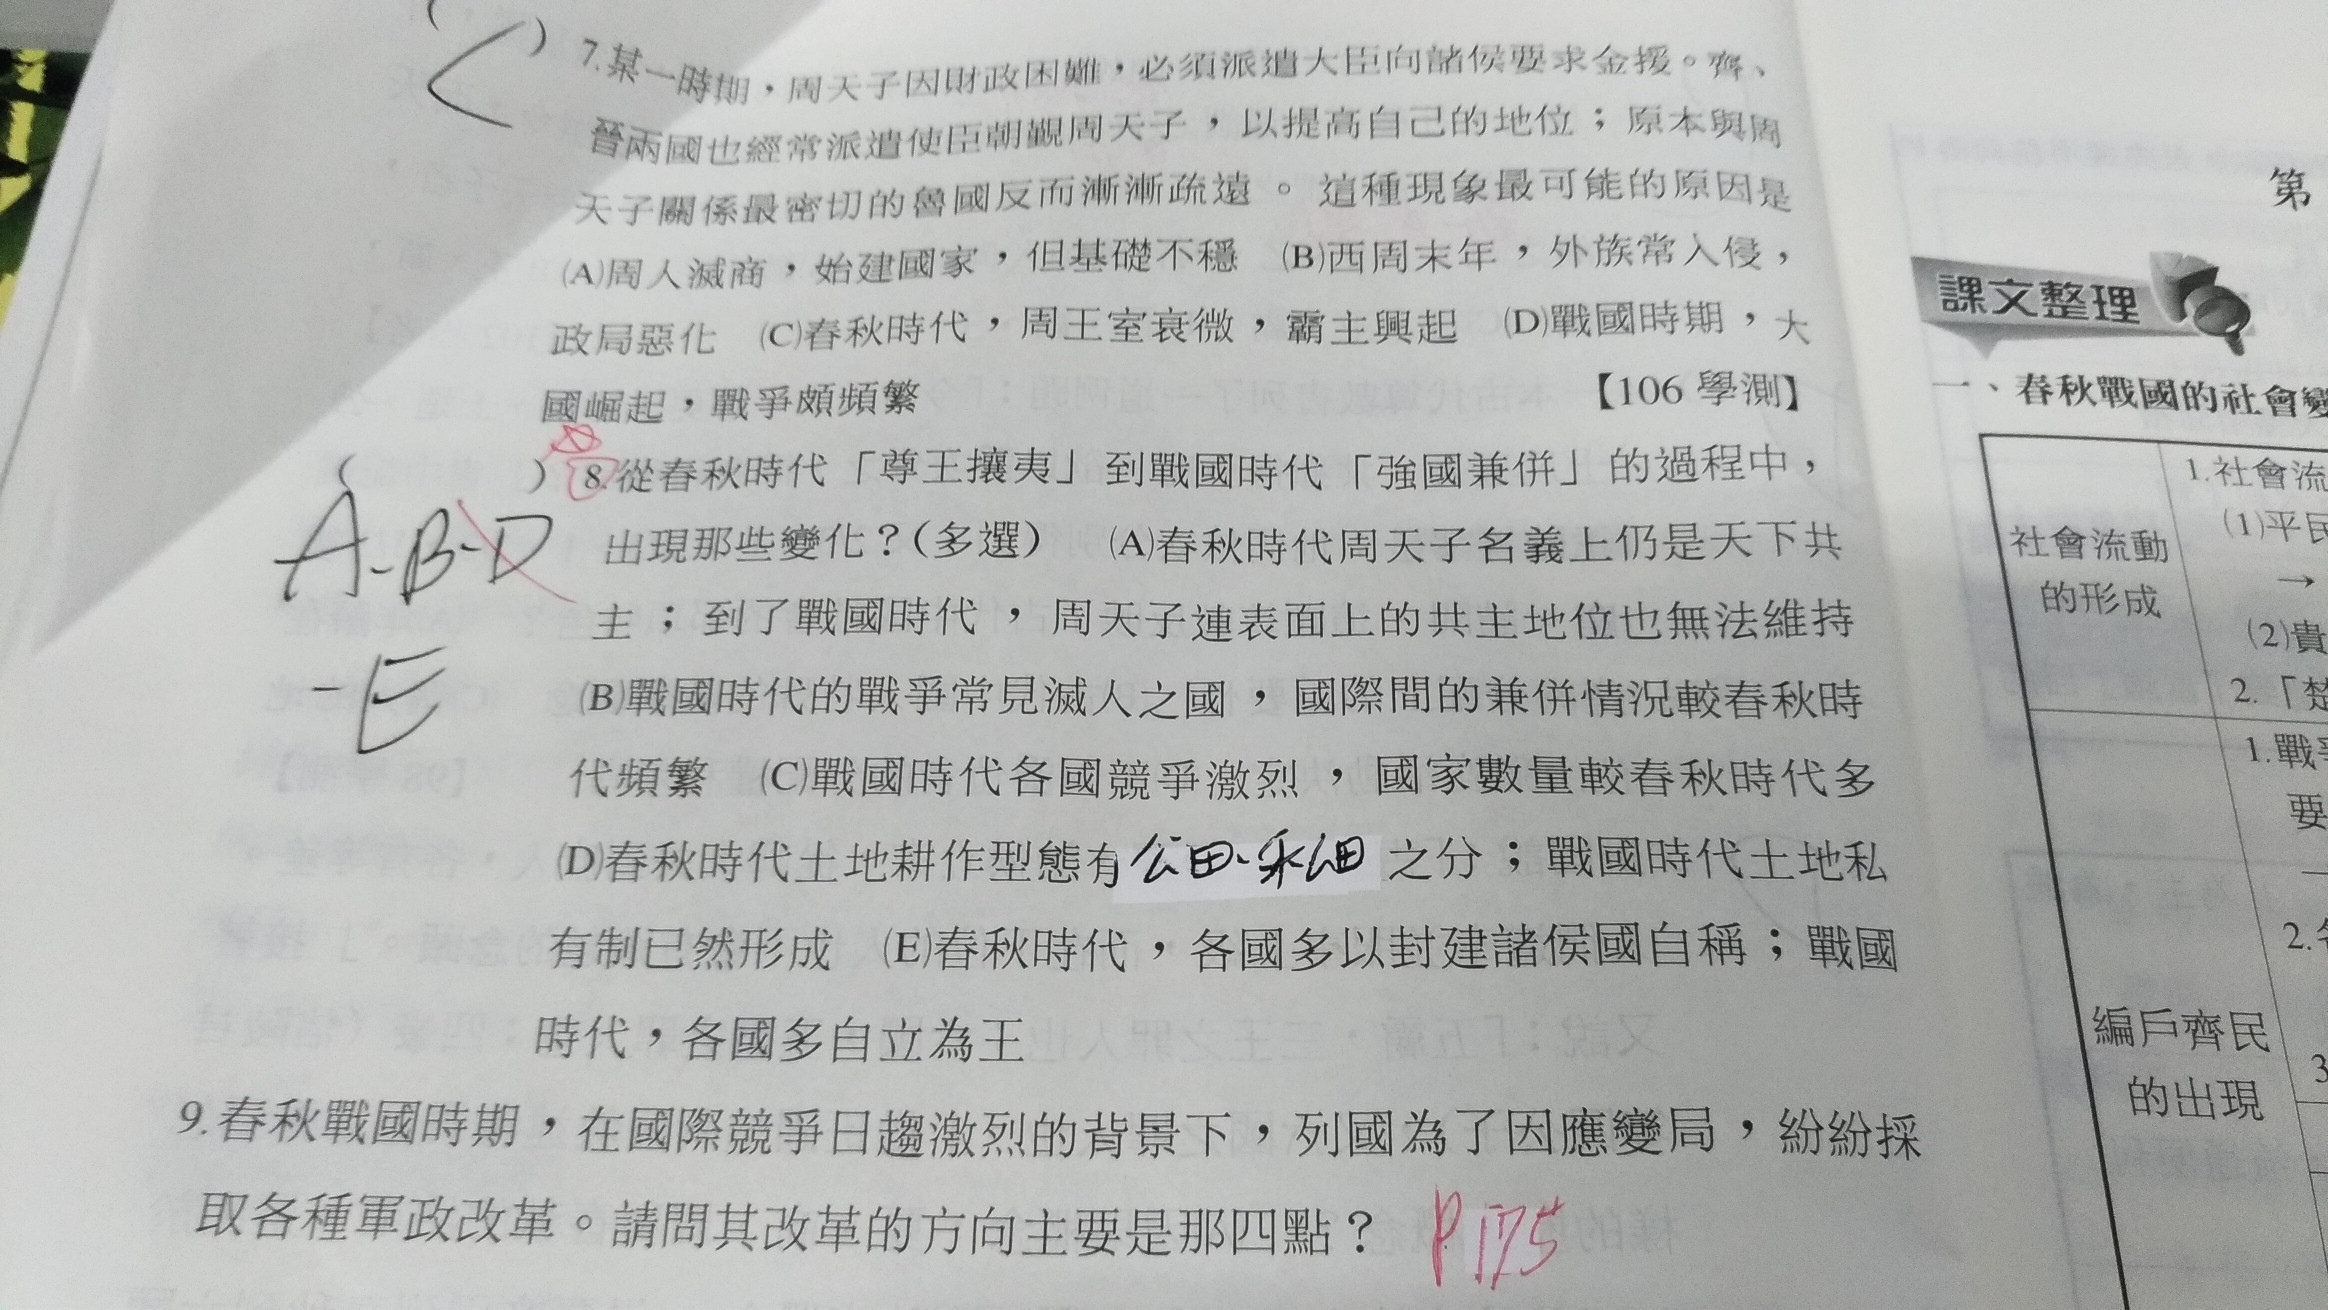 ( ) 7.某一時期，周天子因財政困難，必須派遣大臣向諸侯要求金援。齊、
C
晉兩國也經常派遣使臣朝覲周天子，以提高自己的地位；原本與周
天子關係最密切的魯國反而漸漸疏遠。這種現象最可能的原因是
(A)周人滅商，始建國家，但基礎不穩 (B)西周末年，外族常入侵，
政局惡化 (C)春秋時代，周王室衰微，霸主興起 (D)戰國時期，大
國崛起，戰爭頗頻繁 【106 學測】
( ) 8.從春秋時代「尊王攘夷」到戰國時代「強國兼併」的過程中，
A-B-D
-E
出現那些變化？(多選) (A)春秋時代周天子名義上仍是天下共
主；到了戰國時代，周天子連表面上的共主地位也無法維持
(B)戰國時代的戰爭常見滅人之國，國際間的兼併情況較春秋時
代頻繁 (C)戰國時代各國競爭激烈，國家數量較春秋時代多
(D)春秋時代土地耕作型態有公田、私田之分；戰國時代土地私
有制已然形成 (E)春秋時代，各國多以封建諸侯國自稱；戰國
時代，各國多自立為王
9.春秋戰國時期，在國際競爭日趨激烈的背景下，列國為了因應變局，紛紛採
取各種軍政改革。請問其改革的方向主要是那四點？ P.175
第
課文整理
一、春秋戰國的社會變
社會流動
的形成
1.社會流
(1)平民
→
(2)貴
2.「楚
編戶齊民
的出現
1.戰爭
要
2.各
3